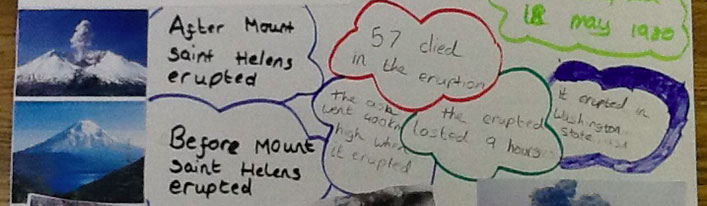 After Mount
Saint Helens
erupted
Before Mount
Saint Helens
erupted
57 died
in the eruption
the ash
went 400km
high when
it erupted
the erupted
lasted 9 hours
18 may 1980
it erupted in
Washington
State